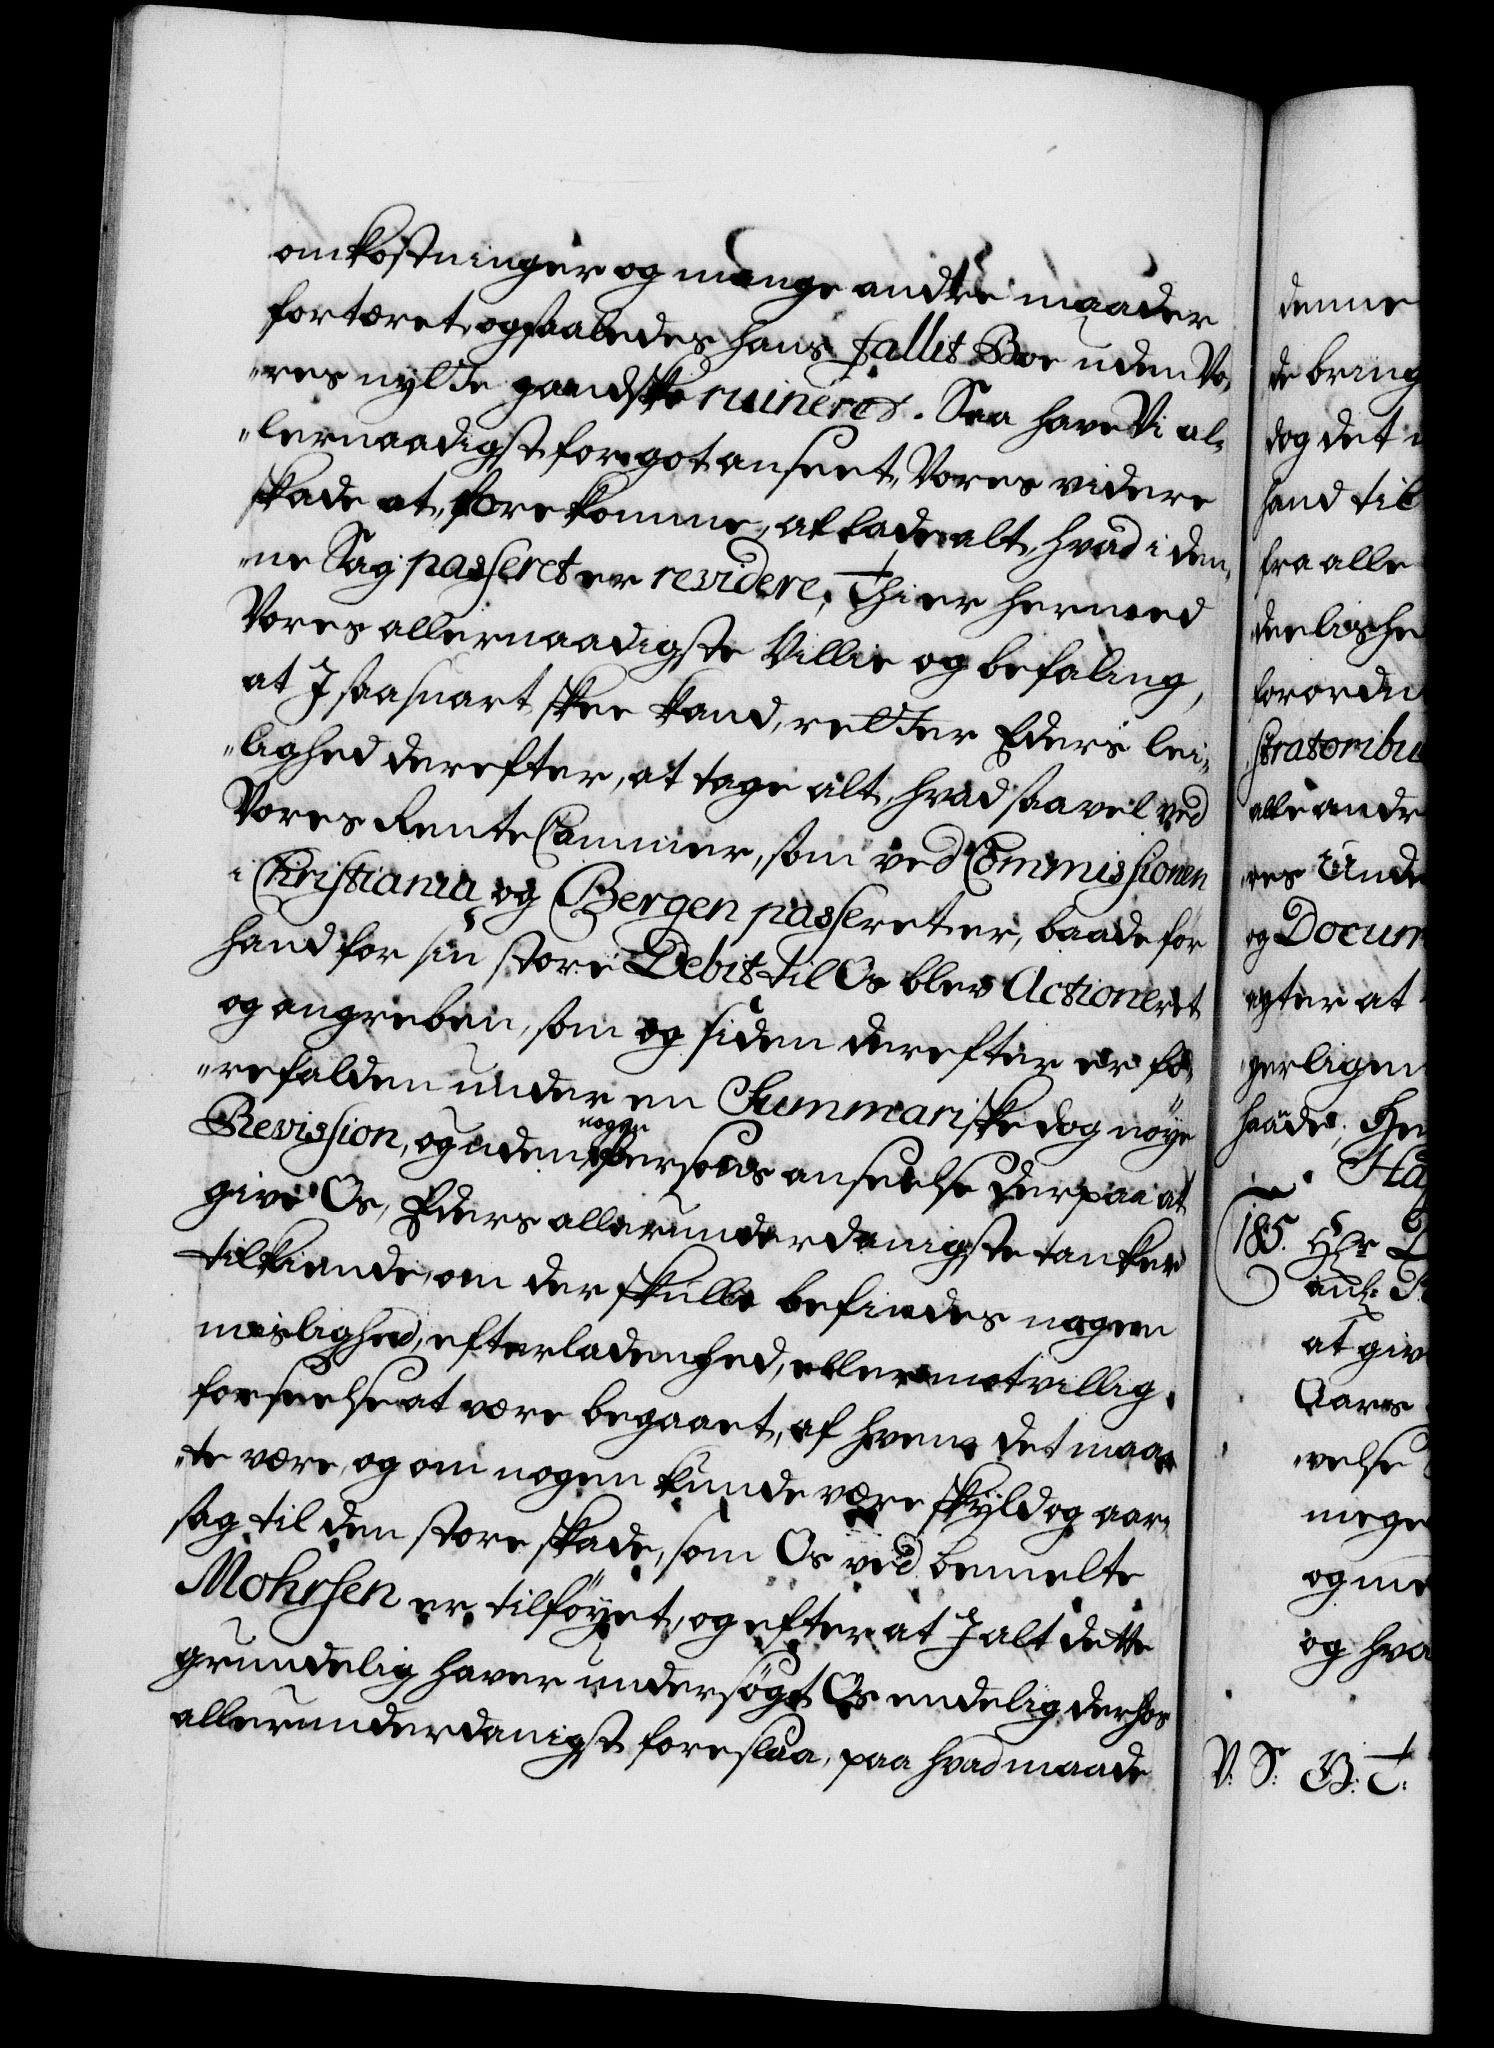 omkostninger og mange andre maader
fortæret, og saaledes hans fallit Boe uden Vo,
"res nytte gandske ruineret. Saa have Vi al-
"lernaadigst for got anseet, Vores videre
skade at forekomme, at lade alt, hvad i den,
"ne Sag passeret er revidere, Thi er hermed
Vores allernaadigste Villie og befaling,
at I saasnart skee kand, retter Eders lei-
"lighed derefter, at tage alt, hvad saavel ved
Vores Rente Cammer, som ved Commissionen
i Christiania og Bergen passeret er, baade før
hand for sin store Debit til Os blev Actioneret
og angreben, som og siden derefter er fo,
"refalden under en Summariske dog nøye
Revission, og uden nogen Persons anseelse derpaa at
give Os, Eders allerunderdanigste tanker
tilkiende, om der skulle befindes nogen
mislighed, efterladenhed, eller motvillig,
forseelse at være begaaet, af hvem det maa
"te være, og om nogen kunde være skyld og aar,
sag til den store skade, som Os ved bemelte
Mohrsen er tilføyet, og efter at I alt dette
grundelig haver undersøgt Os endelig derhos
allerunderdanigst foreslaa, paa hvad maade
denne
de bring
dog det
hand til
fra alle
deelische
forordn
stratoribu
alle andr
res Unde
og Docum
agter at
gerligen
hafde; Her
Ha
185. Hr
ank:
at giv
Aars
velse
mege
og me
og hva
V: S: B: T: